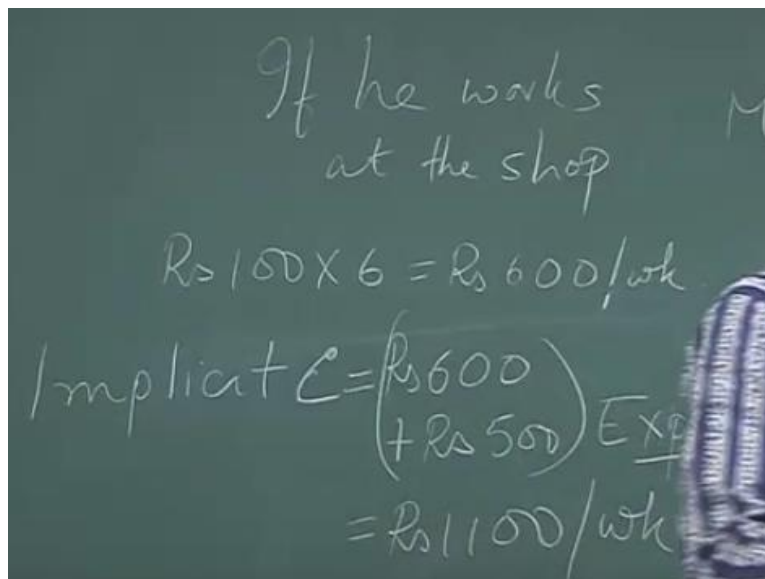 If he works
at the shop
M
Rs 100 X 6 = Rs 600/wk.
Implicit C = (Rs 600
+ Rs 500) Exp
= Rs 1100/wk